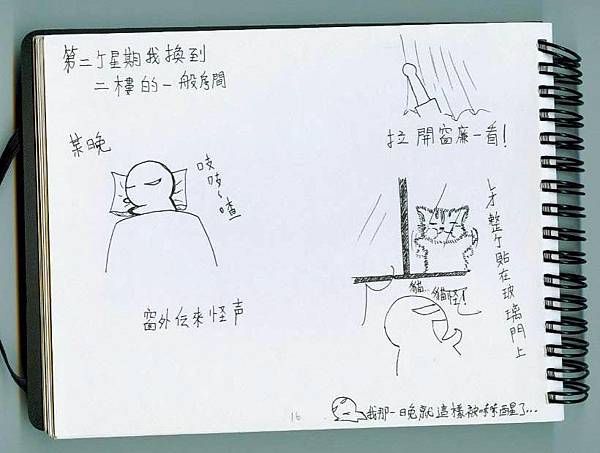 第二ケ星期我換到
二樓的一般房間
某晚
吱吱~喳
窗外伝來怪声
拉開窗廉一看!
整ケ貼在玻璃門上
貓...貓怪!
我那一晚就這樣被嚇醒了...
16